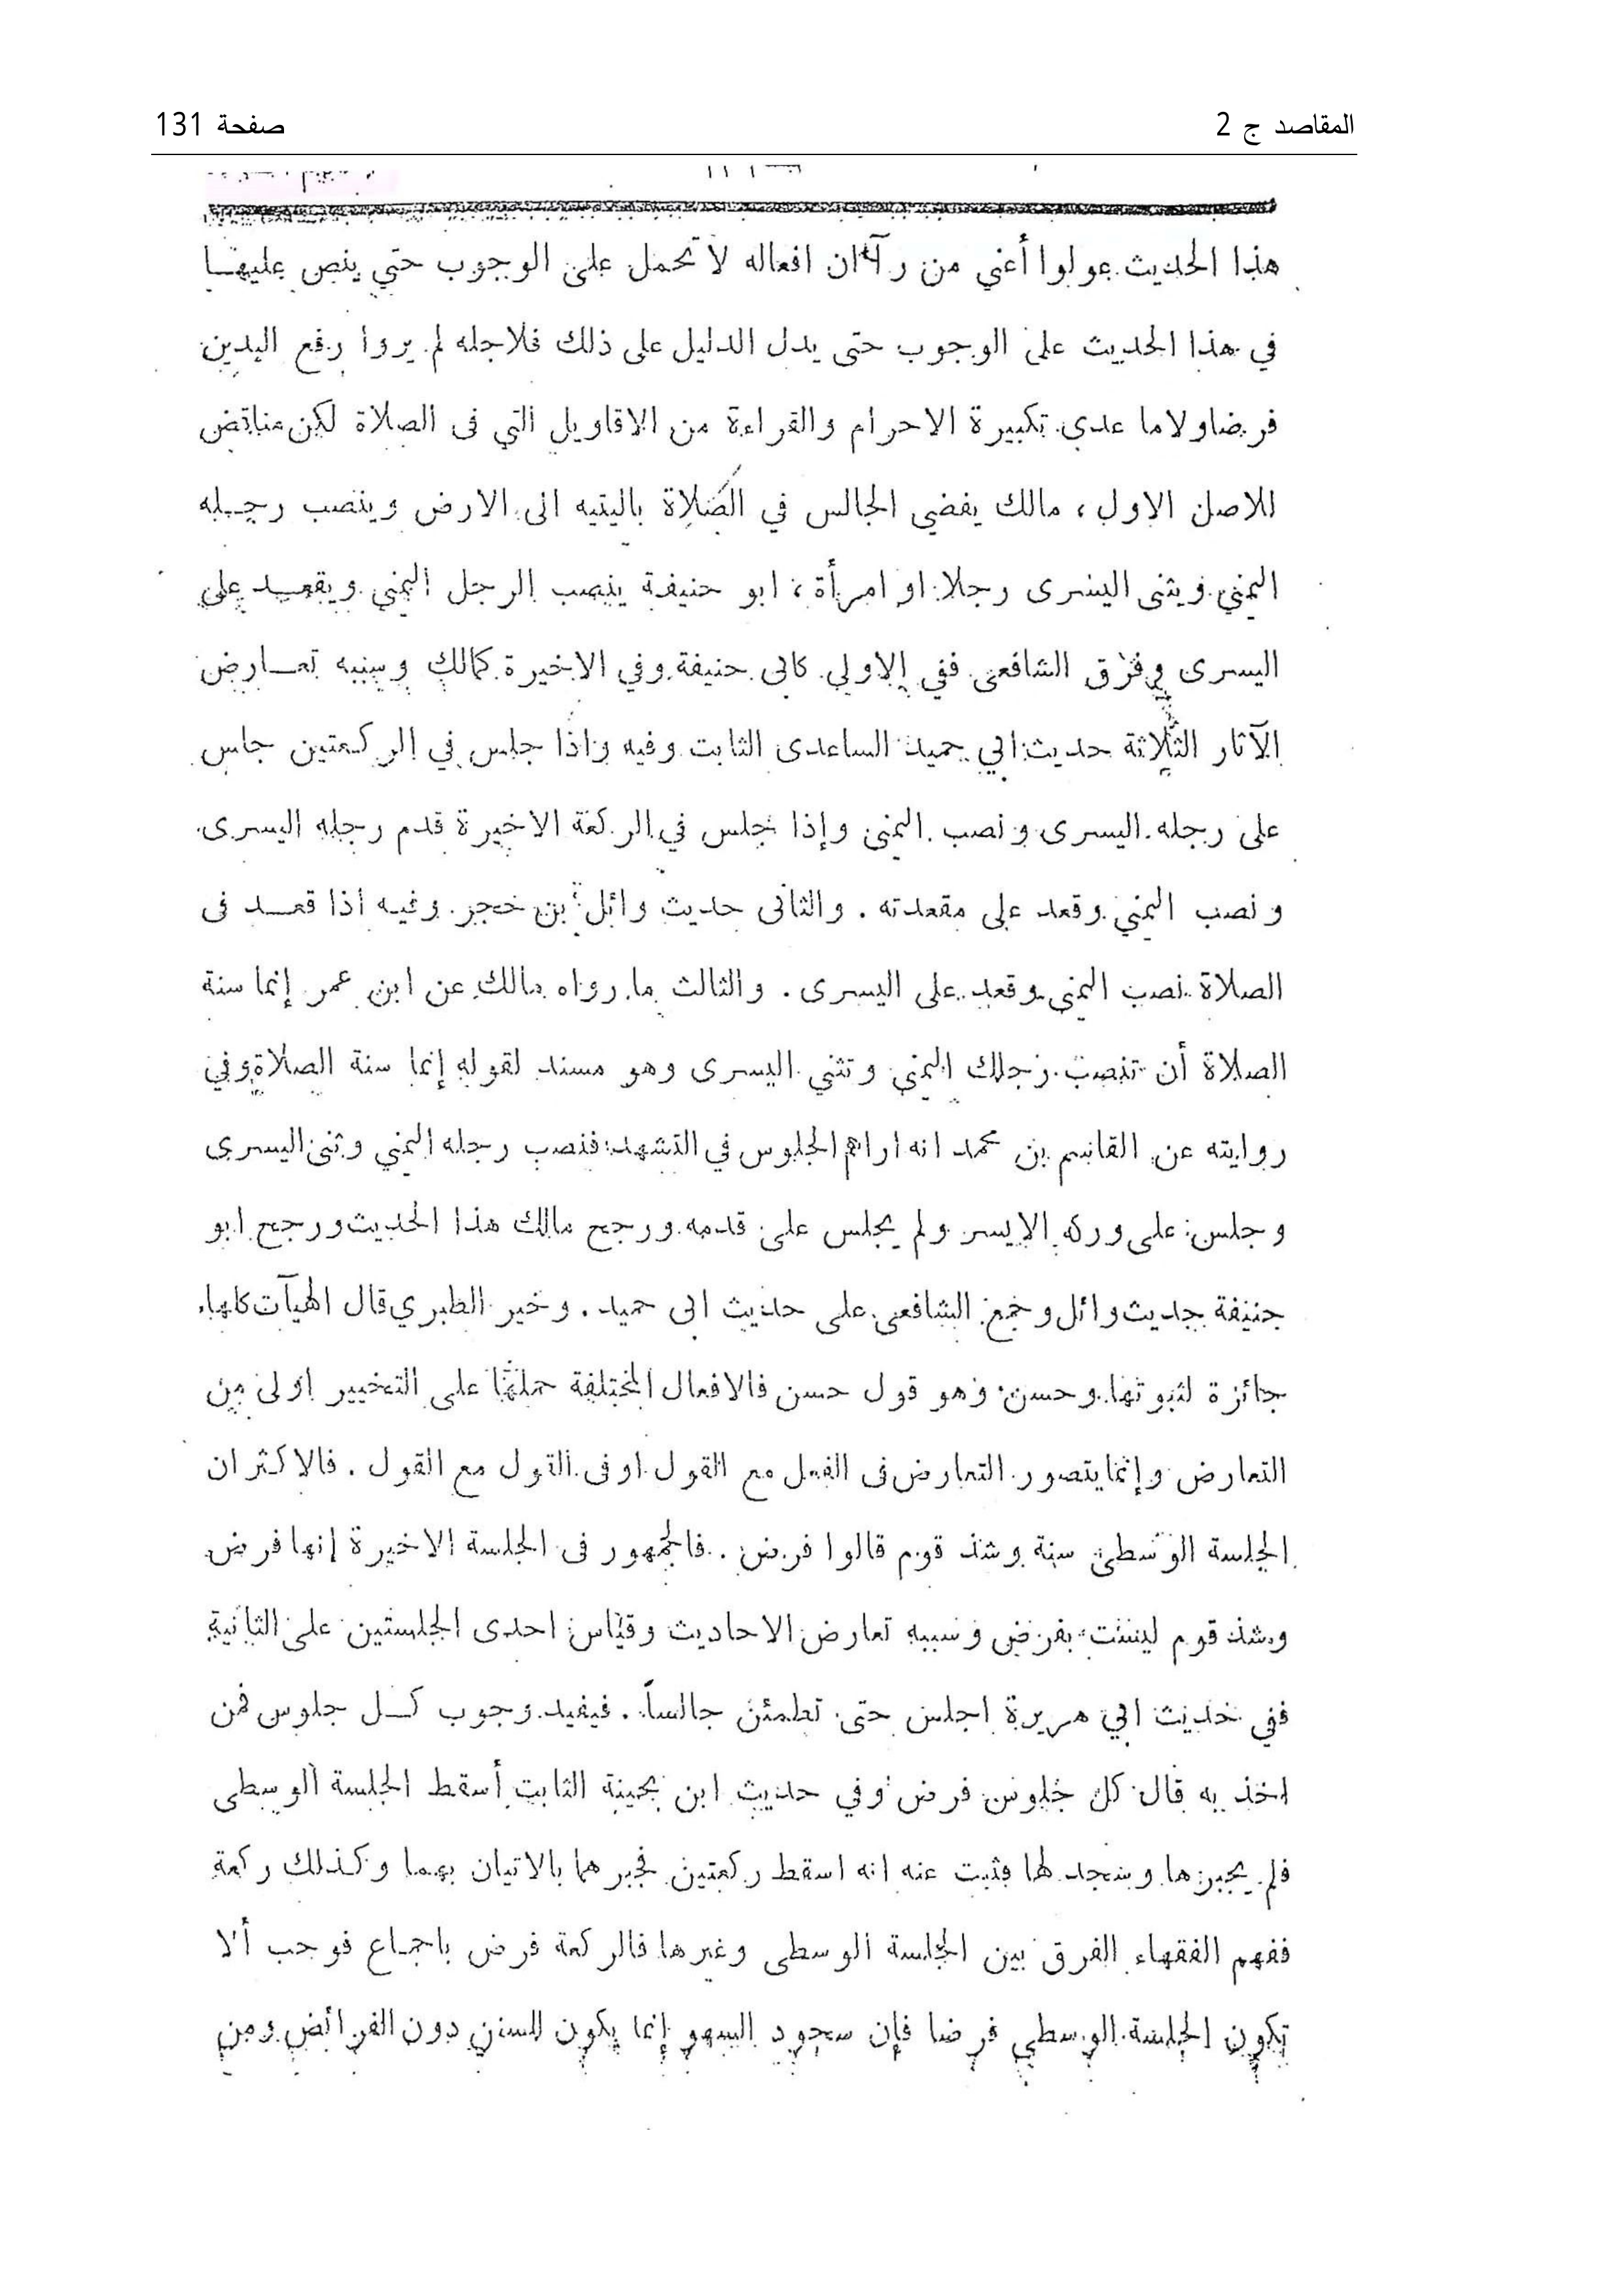 المقاصد ج 2
صفحة 131
هذا الحديث عولوا أعني من رآى ان افعاله لا تحمل على الوجوب حتي ينص عليها
في هذا الحديث على الوجوب حتى يدل الدليل على ذلك فلاجله لم يروا رفع اليدين
فرضا ولا ما عدى تكبيرة الاحرام والقراءة من الاقاويل التي فى الصلاة لكن مناقض
للاصل الاول ، مالك يفضي الجالس في الصلاة باليتيه الى الارض وينصب رجله
اليمني ويثنى اليسرى رجلا او امرأة ، ابو حنيفة ينصب الرجل اليمني ويقعد على
اليسرى وفرق الشافعى ففي الاولى كابى حنيفة وفي الاخيرة كمالك وسببه تعارض
الآثار الثلاثة حديث ابي حميد الساعدى الثابت وفيه واذا جلس في الركعتين جلس
على رجله اليسرى ونصب اليمنى وإذا جلس في الركعة الاخيرة قدم رجله اليسرى
ونصب اليمني وقعد على مقعدته . والثانى حديث وائل بن حجر وفيه اذا قعد فى
الصلاة نصب اليمنى وقعد على اليسرى . والثالث ما رواه مالك عن ابن عمر إنما سنة
الصلاة أن تنصب رجلك اليمني وتثني اليسرى وهو مسند لقوله إنما سنة الصلاة وفي
روايته عن القاسم بن محمد انه اراهم الجلوس في التشهد فنصب رجله اليمني وثنى اليسرى
وجلس على وركه الايسر ولم يجلس على قدمه ورجح مالك هذا الحديث ورجح ابو
حنيفة حديث وائل وجمع الشافعى على حديث ابى حميد . وخير الطبري قال الهيآت كلها
جائزة لثبوتها وحسن وهو قول حسن فالافعال المختلفة حملها على التخيير اولى من
التعارض وإنما يتصور التعارض فى الفعل مع القول او فى القول مع القول . فالاكثر ان
الجلسة الوسطى سنة وشذ قوم قالوا فرض . فالجمهور فى الجلسة الاخيرة إنها فرض
وشذ قوم ليست بفرض وسببه تعارض الاحاديث وقياس احدى الجلستين على الثانية
ففي حديث ابي هريرة اجلس حتى تطمئن جالساً . فيفيد وجوب كل جلوس فمن
اخذ به قال كل جلوس فرض وفي حديث ابن بحينة الثابت أسقط الجلسة الوسطى
فلم يجبرها وسجد لها فثبت عنه انه اسقط ركعتين فجبرهما بالاتيان بهما وكذلك ركعة
ففهم الفقهاء الفرق بين الجلسة الوسطى وغيرها فالركعة فرض باجماع فوجب ألا
تكون الجلسة الوسطى فرضا فإن سجود السهو إنما يكون للسنن دون الفرائض ومن